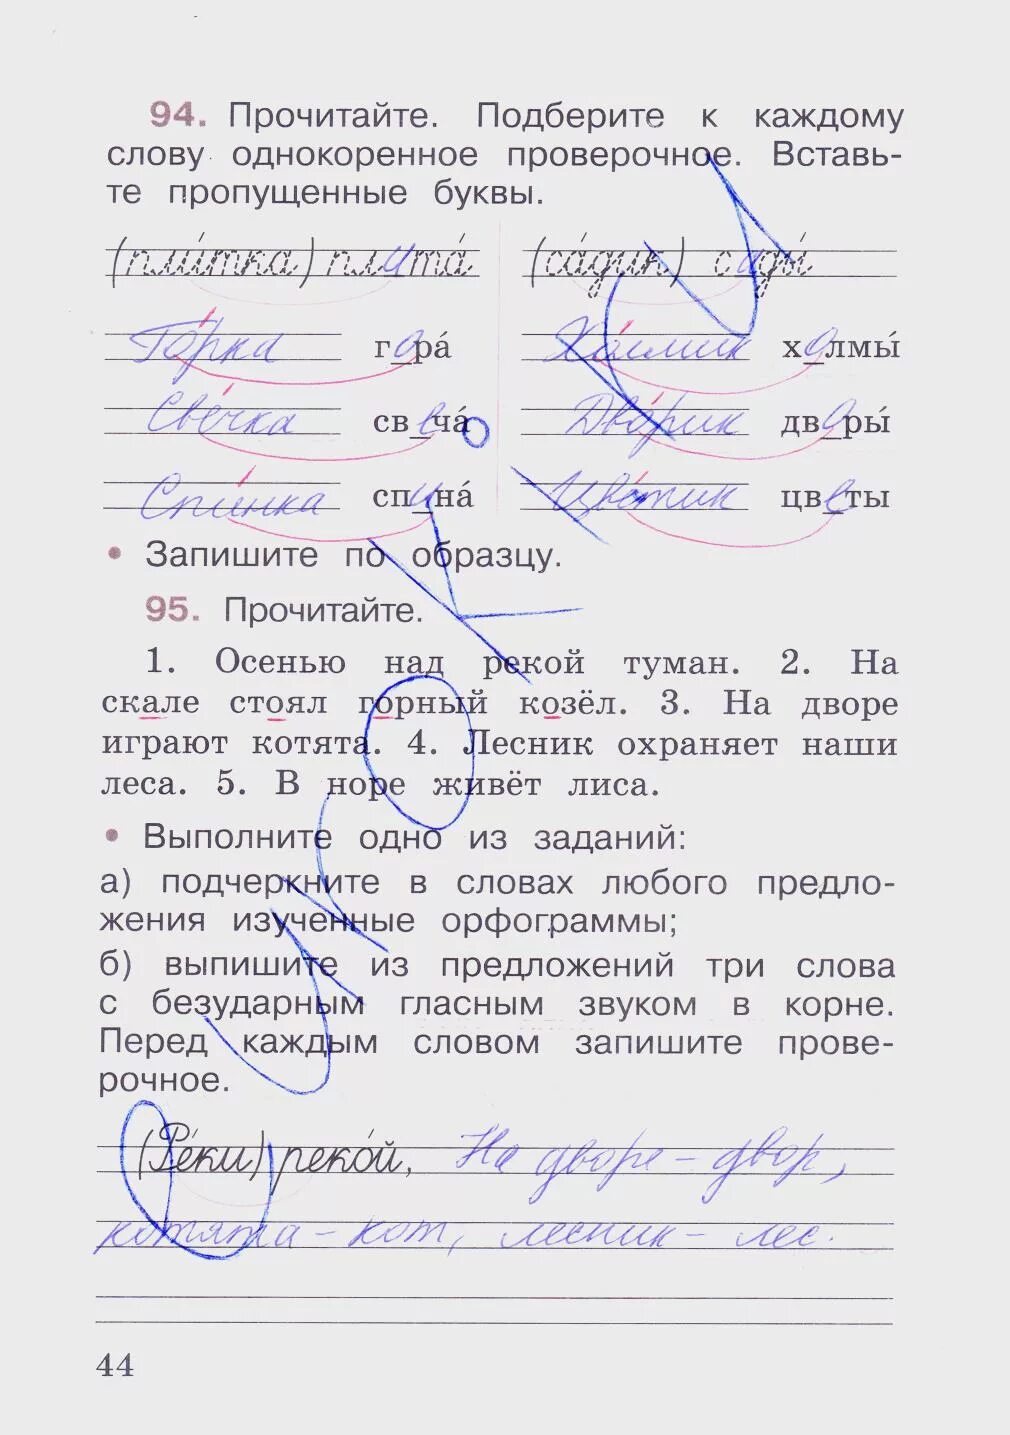 94. Прочитайте. Подберите к каждому
слову однокоренное проверочное. Вставь-
те пропущенные буквы.
(пли́тка) плита́ (са́дик) сады́
Го́рка гора́ Хо́лмик холмы́
Све́чка свеча́ Дво́рик дворы́
Спи́нка спина́ Цве́тик цветы
• Запишите по образцу.
95. Прочитайте.
1. Осенью над рекой туман. 2. На
скале стоял горный козёл. 3. На дворе
играют котята. 4. Лесник охраняет наши
леса. 5. В норе живёт лиса.
• Выполните одно из заданий:
а) подчеркните в словах любого предло-
жения изученные орфограммы;
б) выпишите из предложений три слова
с безударным гласным звуком в корне.
Перед каждым словом запишите прове-
рочное.
(Ре́ки) реко́й, На дворе - двор,
котята - кот, лесник - лес.
44